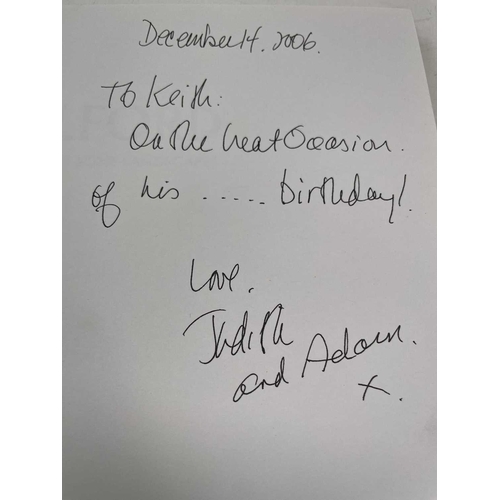 December 14. 2006.
To Keith:
On the Great Occasion.
of his ..... birthday!
Love.
Judith
and Adam.
x.